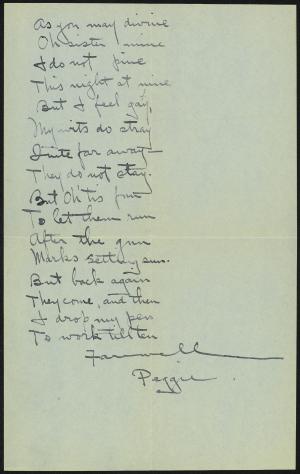 As you may divine
Oh sister mine
I do not pine
This night at nine
But I feel gay,
My wits do stray
Quite far away—
They do not stay.
But Oh 'tis fun
To let them run
After the gun
Marks setting sun.
But back again
They come, and then
I drop my pen
To work till ten
Farewell
Peggie.